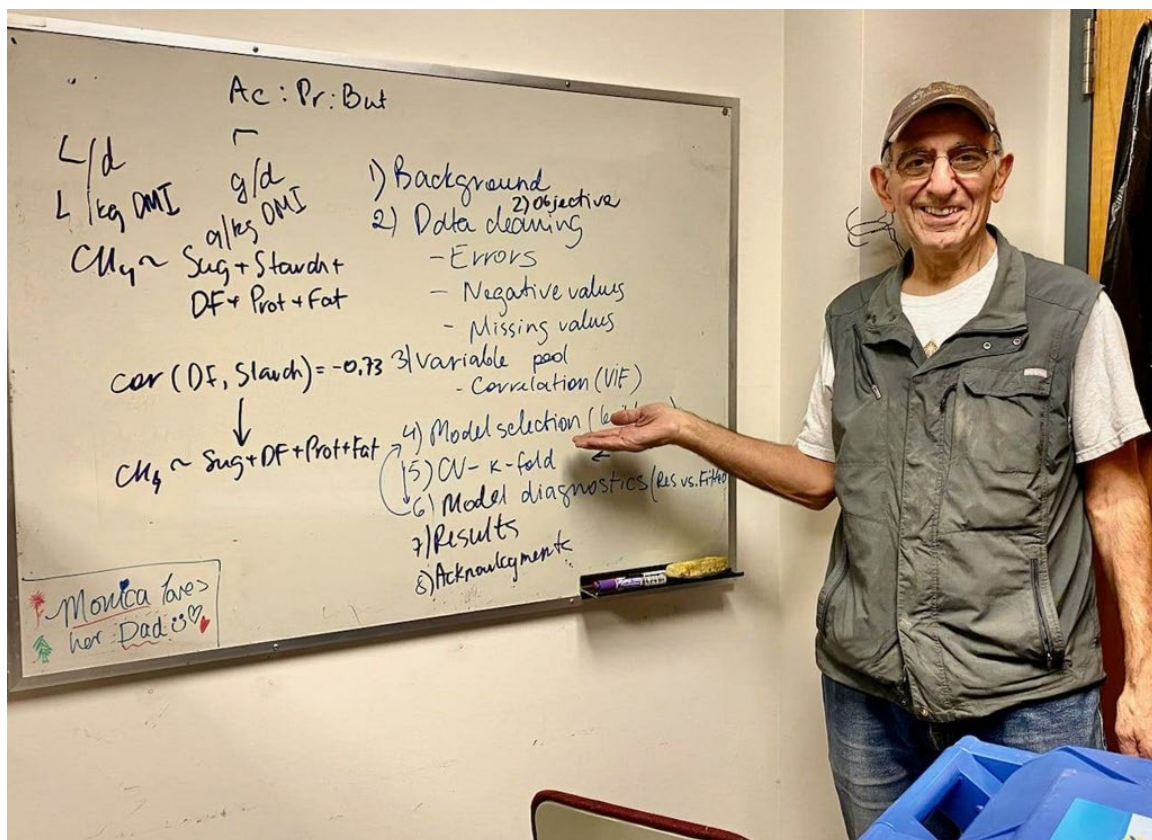 Ac : Pr : But
L/d
L/kg DMI
g/d
g/kg DMI
CH4 ~ Sug + Starch +
DF + Prot + Fat
cor (DF, Starch) = -0,73
CH4 ~ Sug + DF + Prot + Fat
1) Background
2) Objective
2) Data cleaning
- Errors
- Negative values
- Missing values
3) Variable pool
- Correlation (VIF)
4) Model selection (
5) CV - K-fold
6) Model diagnostics (Res vs. Fitted
7) Results
8) Acknowlegments
Monica loves
her Dad